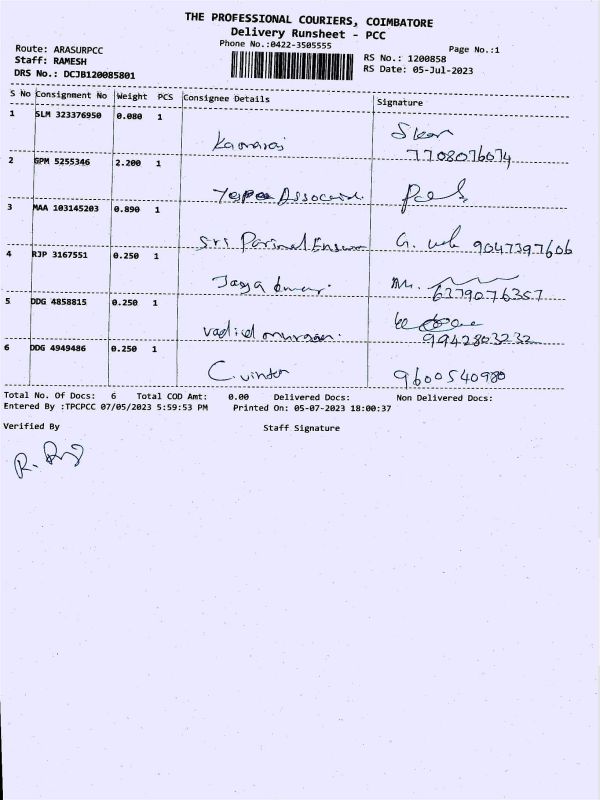 THE PROFESSIONAL COURIERS, COIMBATORE
Delivery Runsheet - PCC
Phone No.:0422-3505555
Page No.:1
Route: ARASURPCC
Staff: RAMESH
DRS No.: DCJB120085801
RS No.: 1200858
RS Date: 05-Jul-2023
S No Consignment No Weight PCS Consignee Details Signature
1 SLM 323376950 0.080 1
Kamaraj
7708076074
2 GPM 5255346 2.200 1
3 MAA 103145203 0.890 1
Sri 9047397606
4 RJP 3167551 0.250 1
Jaya kumar.
6379076357
5 DDG 4858815 0.250 1
9942803232
6 DDG 4949486 0.250 1
C.
9600540980
Total No. Of Docs: 6 Total COD Amt: 0.00 Delivered Docs: Non Delivered Docs:
Entered By :TPCPCC 07/05/2023 5:59:53 PM Printed On: 05-07-2023 18:00:37
Verified By Staff Signature